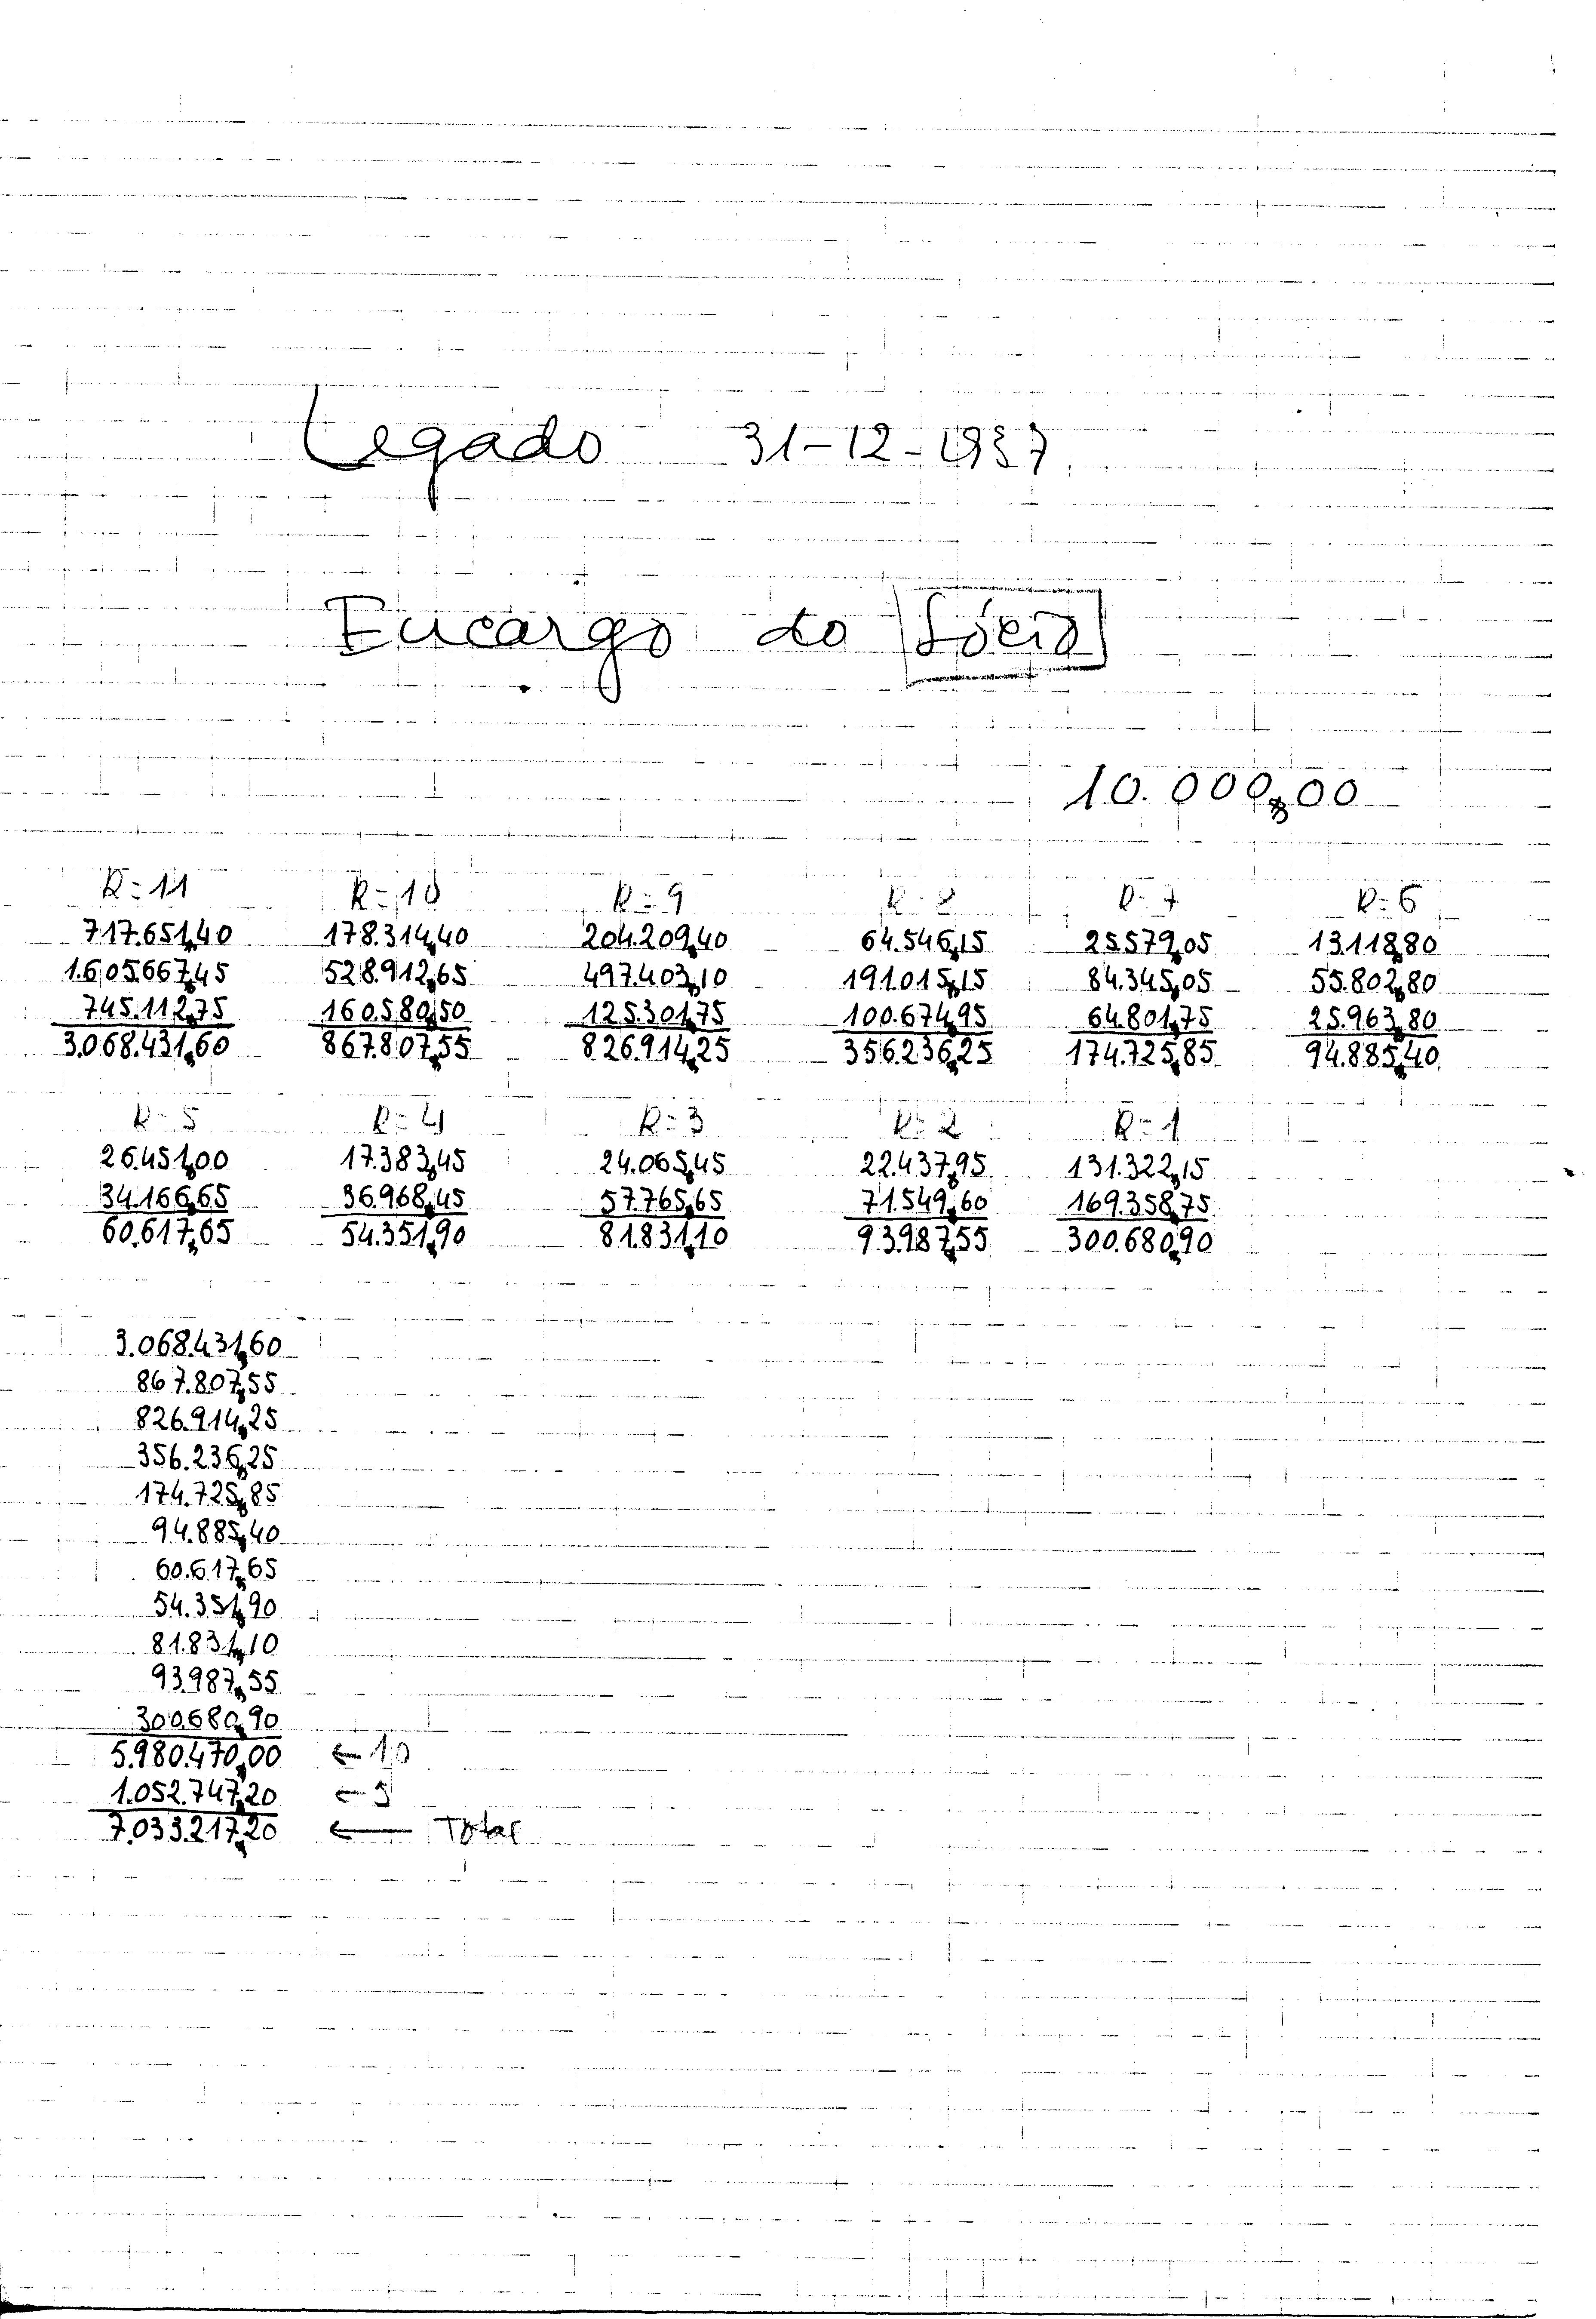 Legado 31-12-1987
Encargo do Sócio
10.000$00
R=11 R=10 R=9 R=8 R=7 R=6
717.651$40 178.314$40 204.209$40 64.546$15 25.579$05 13.118$80
1.605.667$45 528.912$65 497.403$10 191.015$15 84.345$05 55.802$80
745.112$75 160.580$50 125.301$75 100.674$95 64.801$75 25.963$80
3.068.431$60 867.807$55 826.914$25 356.236$25 174.725$85 94.885$40
R=5 R=4 R=3 R=2 R=1
26.451$00 17.383$45 24.065$45 22.437$95 131.322$15
34.166$65 36.968$45 57.765$65 71.549$60 169.358$75
60.617$65 54.351$90 81.831$10 93.987$55 300.680$90
3.068.431$60
867.807$55
826.914$25
356.236$25
174.725$85
94.885$40
60.617$65
54.351$90
81.831$10
93.987$55
300.680$90
5.980.470$00 ← 10
1.052.747$20 ← 5
7.033.217$20 ← Total